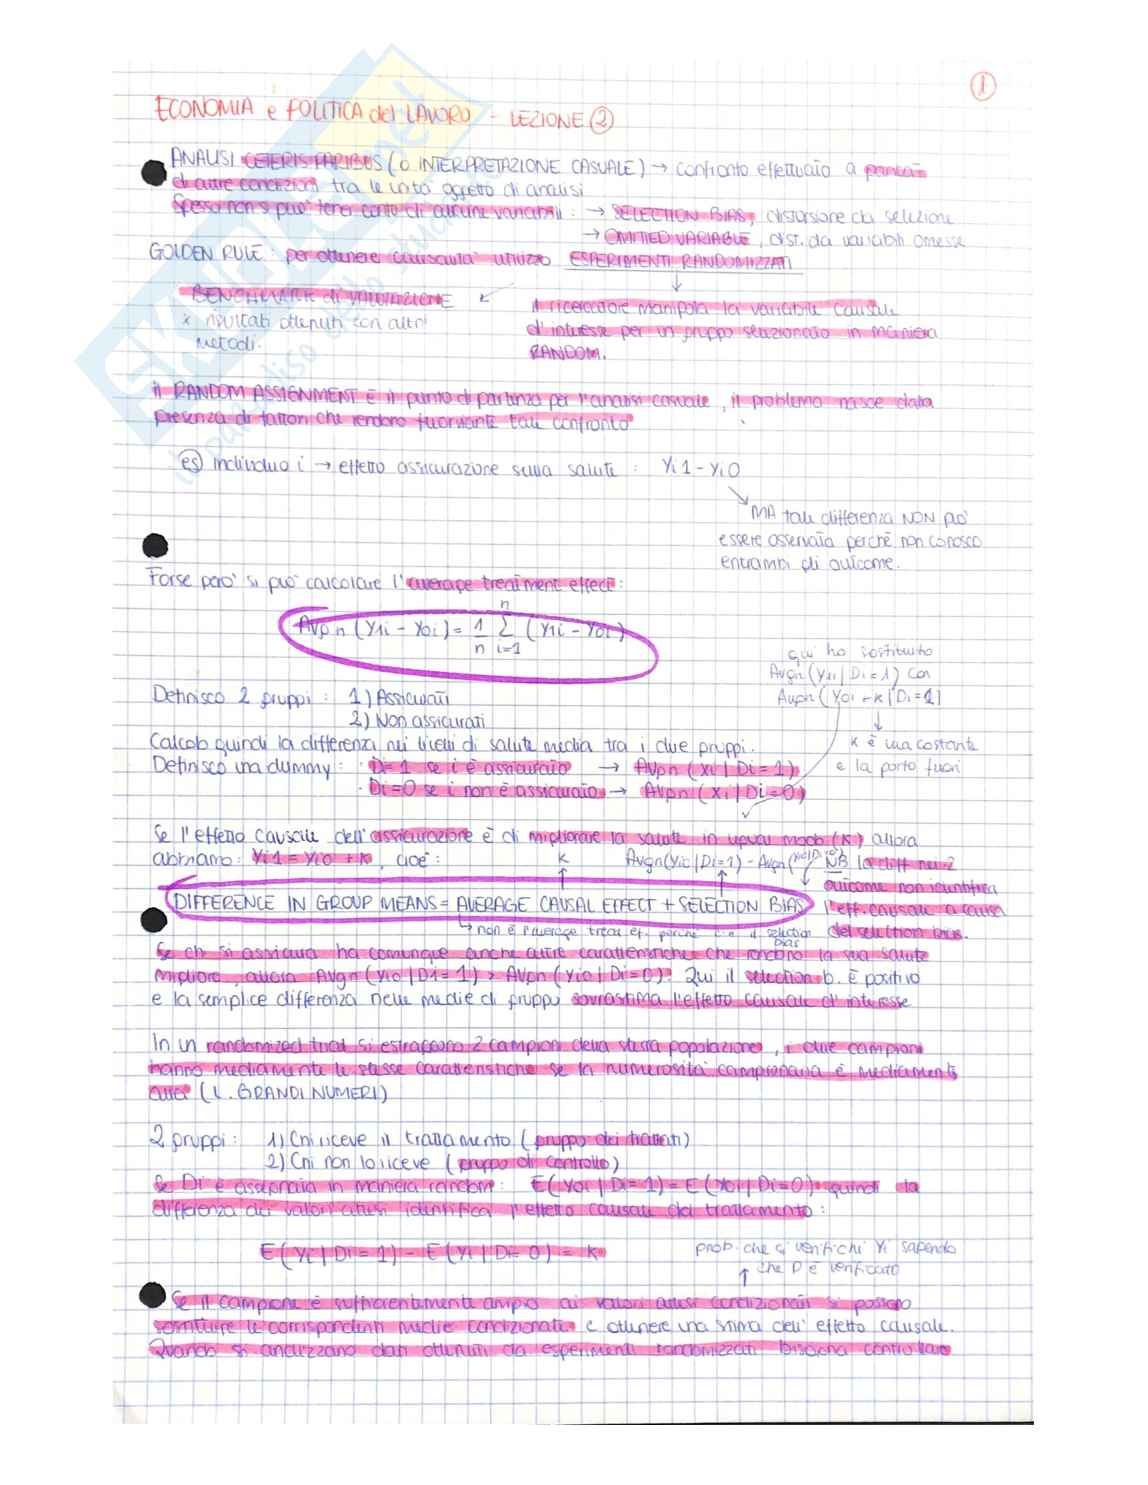 1
ECONOMIA e POLITICA del LAVORO - LEZIONE 2
ANALISI CETERIS PARIBUS (o INTERPRETAZIONE CASUALE) → confronto effettuato a parità
di altre condizioni tra le unità oggetto di analisi
Spesso non si può tener conto di alcune variabili : → SELECTION BIAS, distorsione da selezione
→ OMITTED VARIABLE, dist. da variabili omesse
GOLDEN RULE : per ottenere causalità utilizzo ESPERIMENTI RANDOMIZZATI
BENCHMARK di VALUTAZIONE
x risultati ottenuti con altri
metodi.
il ricercatore manipola la variabile causale
d'interesse per un gruppo selezionato in maniera
RANDOM.
il RANDOM ASSIGNMENT è il punto di partenza per l'analisi casuale, il problema nasce dalla
presenza di fattori che rendono fuorviante tale confronto
es individuo i → effetto assicurazione sulla salute : Yi1 - Yi0
MA tale differenza NON può
essere osservata perchè non conosco
entrambi gli outcome.
Forse però si può calcolare l'average treatment effect :
Avgn (Y1i - Y0i) = 1/n Σ n i=1 (Y1i - Y0i)
qui ho sostituito
Avgn (Y1i | Di = 1) con
Avgn (Y0i + K | Di = 1)
K è una costante
e la porto fuori
Definisco 2 gruppi : 1) Assicurati
2) Non assicurati
Calcolo quindi la differenza nei livelli di salute media tra i due gruppi.
Definisco una dummy : · Di = 1 se i è assicurato → Avgn (Yi | Di = 1)
· Di = 0 se i non è assicurato → Avgn (Yi | Di = 0)
Se l'effetto causale dell'assicurazione è di migliorare la salute in ugual modo (K) allora
abbiamo : Yi1 = Yi0 + K, cioè :
K Avgn (Yi0 | Di = 1) - Avgn (Yi0 | Di = 0)
NB la diff nei 2
outcome non identifica
l'eff. causale a causa
del selection bias.
DIFFERENCE IN GROUP MEANS = AVERAGE CAUSAL EFFECT + SELECTION BIAS
non è l'average treat ef. perchè c'è il selection bias
Se chi si assicura ha comunque anche altre caratteristiche che rendono la sua salute
migliore, allora Avgn (Yi0 | Di = 1) > Avgn (Yi0 | Di = 0). Qui il selection b. è positivo
e la semplice differenza nelle medie di gruppi sovrastima l'effetto causale di interesse
In un randomized trial si estraggono 2 campioni della stessa popolazione, i due campioni
hanno mediamente le stesse caratteristiche se la numerosità campionaria è mediamente
alta (L. GRANDI NUMERI)
2 gruppi : 1) Chi riceve il trattamento (gruppo dei trattati)
2) Chi non lo riceve (gruppo di controllo)
Se Di è assegnata in maniera random : E (Y0i | Di = 1) = E (Y0i | Di = 0) quindi la
differenza dei valori attesi identifica l'effetto causale del trattamento :
E (Yi | Di = 1) - E (Yi | Di = 0) = K
prob. che si verifichi Yi sapendo
che D è verificato
Se il campione è sufficientemente ampio ai valori attesi condizionati si possono
sostituire le corrispondenti medie condizionate e ottenere una stima dell'effetto causale.
Quando si analizzano dati ottenuti da esperimenti randomizzati bisogna controllare